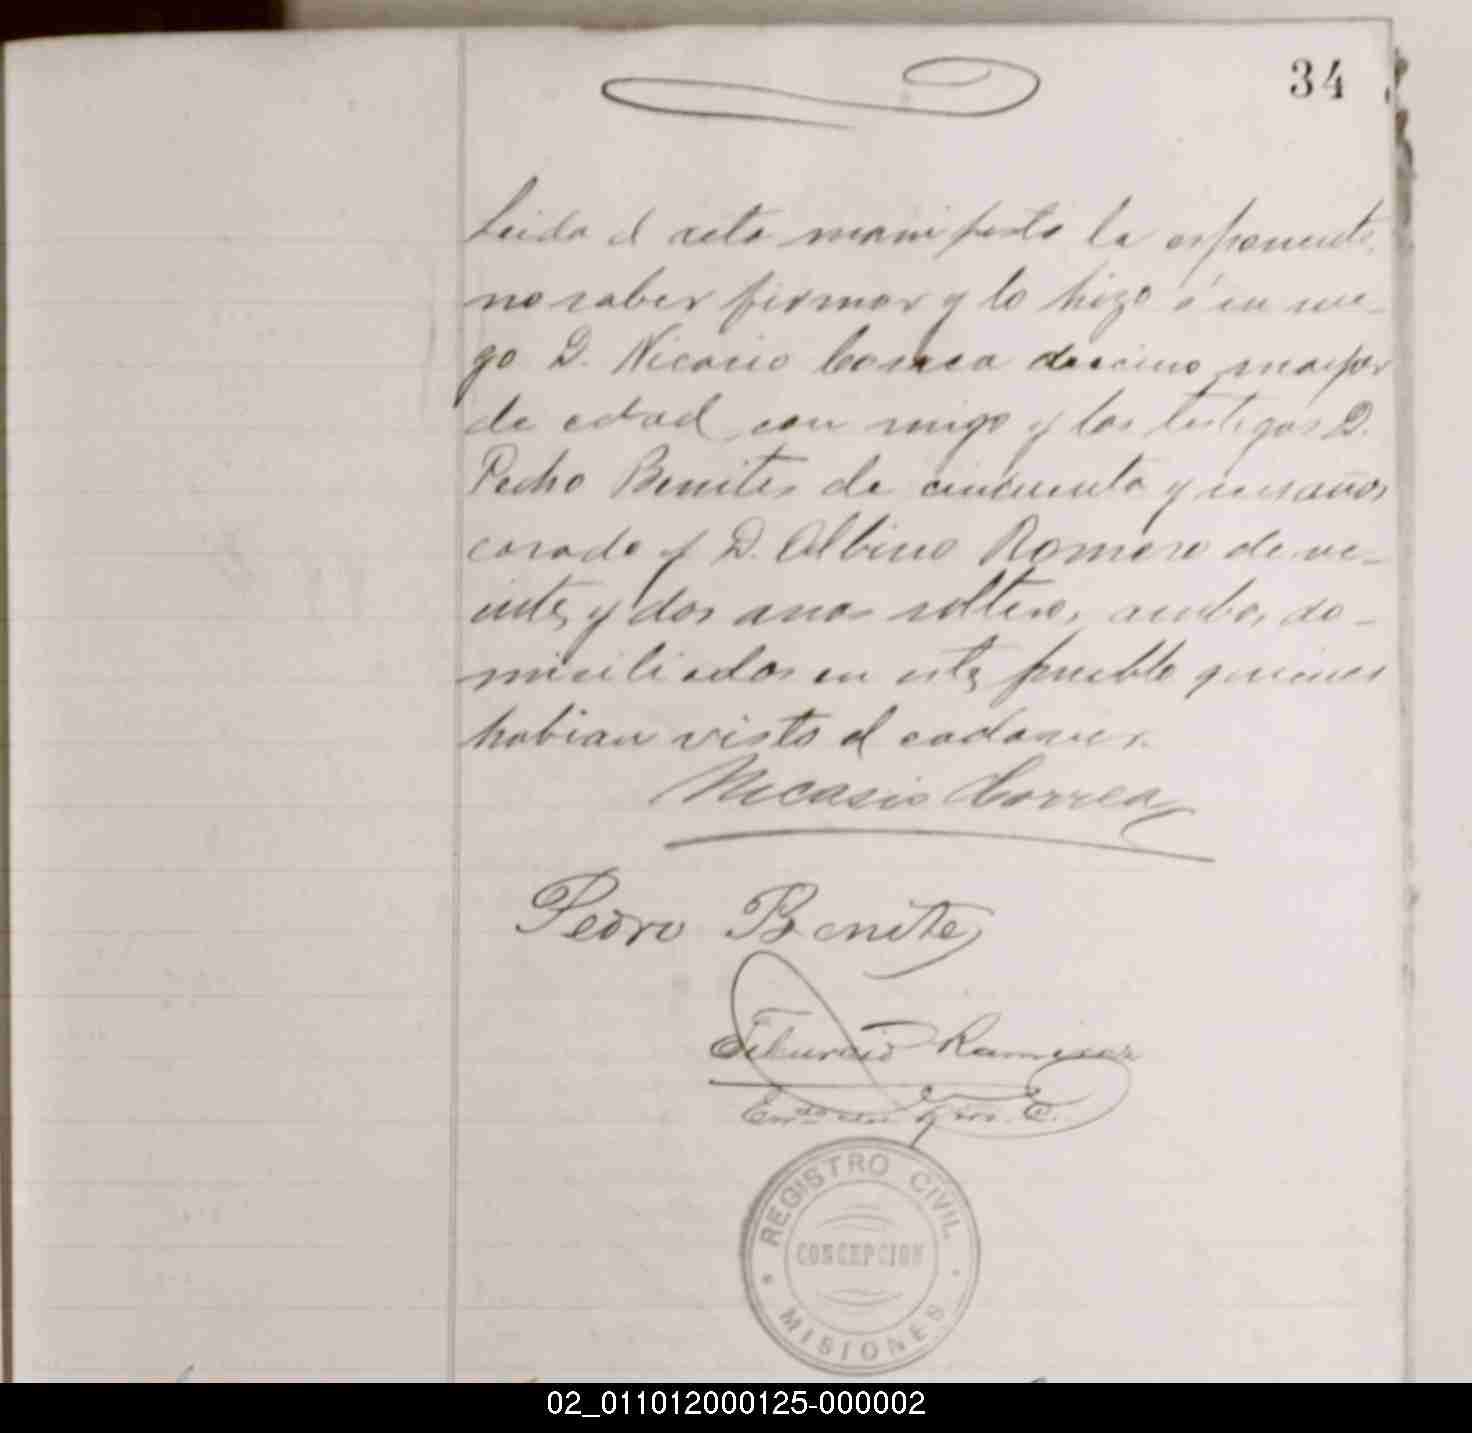 34
Leida el acta manifesto la esponente
no saber firmar y lo hizo á su rue-
go D. Nicacio Correa vecino mayor
de edad con migo y los testigos D.
Pedro Benites de cincuenta y un años
casado y D. Albino Romero de ve-
inte y dos anos soltero, ambos do-
miciliados en este pueblo quienes
habian visto el cadaver.
Nicasio Correa
Pedro Benitez
Tiburcio Ramirez
REGISTRO CIVIL
CONCEPCION
MISIONES
02_011012000125-000002